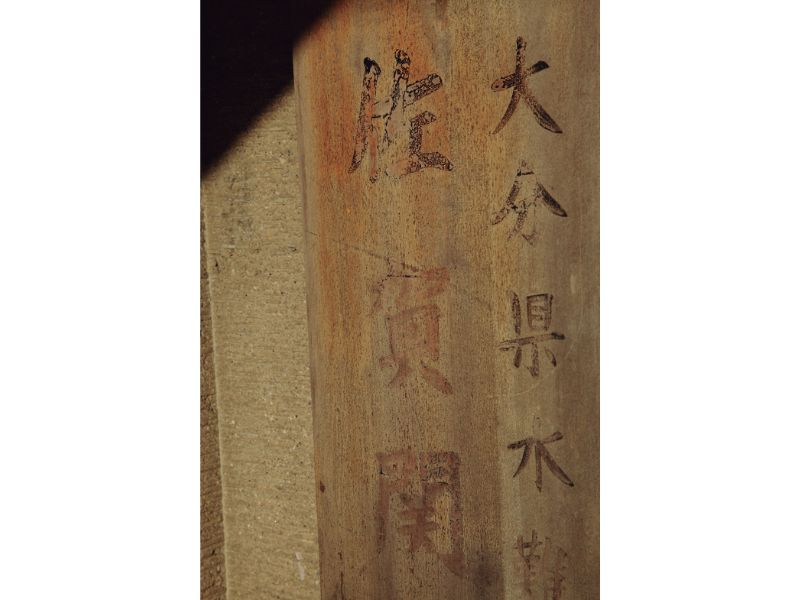 大分県水難
佐賀関